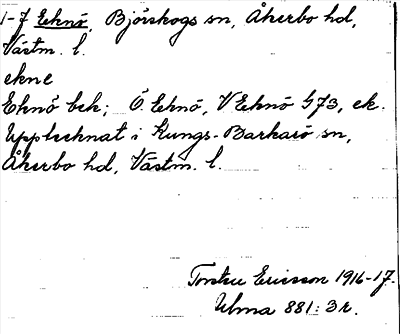 1-7 Eknö, Björskogs sn, Åkerbo hd,
Västm. l.
ekne
Eknö bek; Ö Eknö, V Eknö 473, ek.
Upptecknat i Kungs-Barkarö sn,
Åkerbo hd, Västm. l.
Torsten Ericsson 1916-17.
Ulma 881: 3 r.